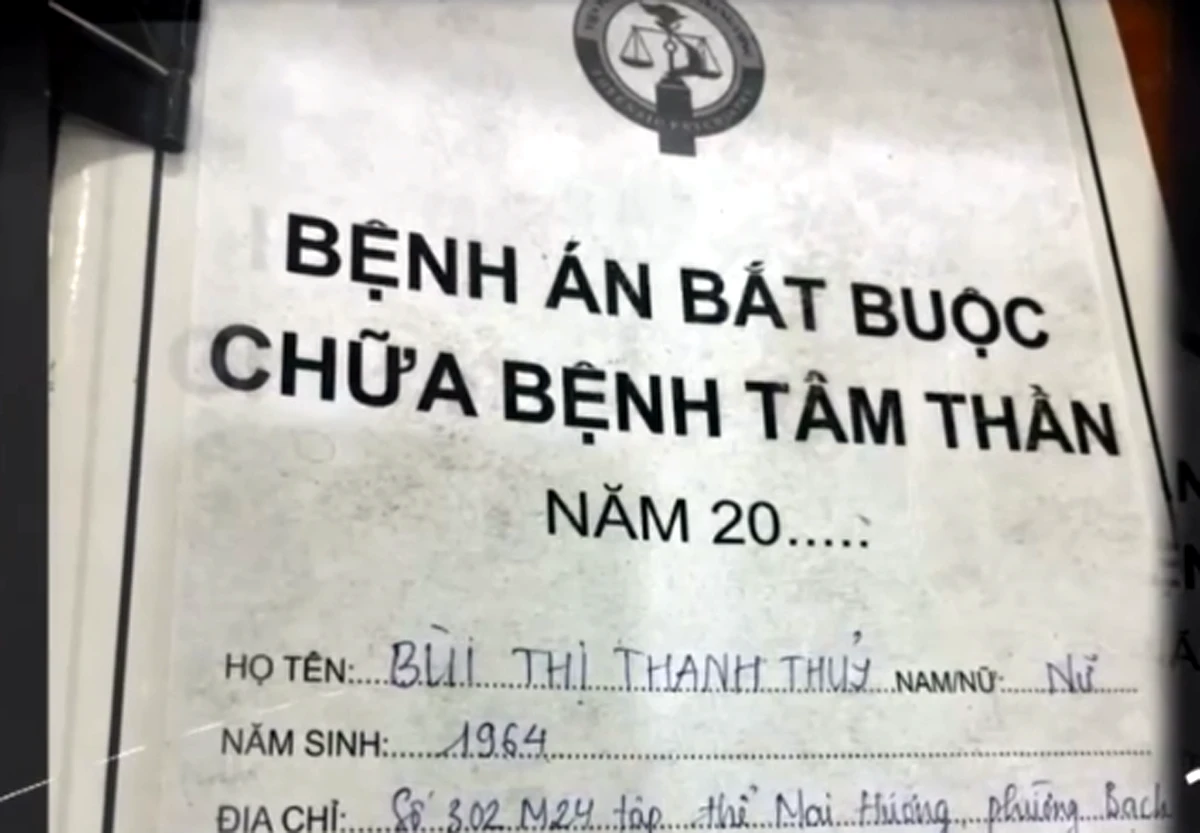 BỆNH ÁN BẮT BUỘC
CHỮA BỆNH TÂM THẦN
NĂM 20.....
HỌ TÊN: BÙI THỊ THANH THUỶ NAM/NỮ: Nữ
NĂM SINH: 1964
ĐỊA CHỈ: Số 302 M24 tập thể Mai Hương, phường Bạch